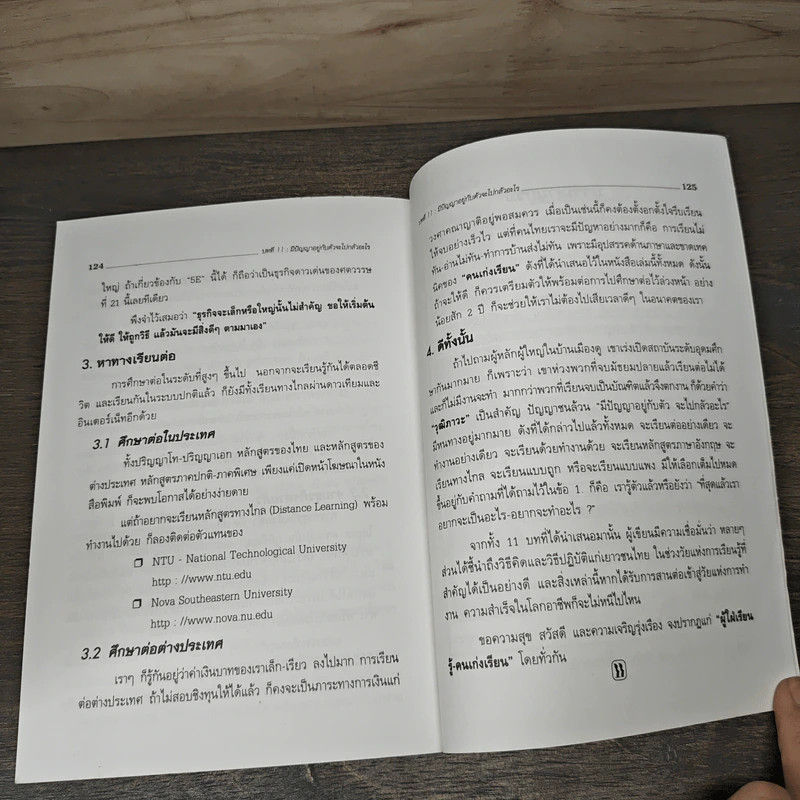 124
บทที่ 11 : มีปัญญาอยู่กับตัวจะไปกลัวอะไร
ใหญ่ ถ้าเกี่ยวข้องกับ "5E" นี้ได้ ก็ถือว่าเป็นธุรกิจดาวเด่นของศตวรรษ
ที่ 21 นี้เลยทีเดียว
พึงจำไว้เสมอว่า "ธุรกิจจะเล็กหรือใหญ่นั้นไม่สำคัญ ขอให้เริ่มต้น
ให้ดี ให้ถูกวิธี แล้วมันจะมีสิ่งดีๆ ตามมาเอง"
3. หาทางเรียนต่อ
การศึกษาต่อในระดับที่สูงๆ ขึ้นไป นอกจากจะเรียนรู้กันได้ตลอดชี
วิต และเรียนกันในระบบปกติแล้ว ก็ยังมีทั้งเรียนทางไกลผ่านดาวเทียมและ
อินเตอร์เน็ทอีกด้วย
3.1 ศึกษาต่อในประเทศ
ทั้งปริญญาโท-ปริญญาเอก หลักสูตรของไทย และหลักสูตรของ
ต่างประเทศ หลักสูตรภาคปกติ-ภาคพิเศษ เพียงแค่เปิดหน้าโฆษณาในหนัง
สือพิมพ์ ก็จะพบโอกาสได้อย่างง่ายดาย
แต่ถ้าอยากจะเรียนหลักสูตรทางไกล (Distance Learning) พร้อม
ทำงานไปด้วย ก็ลองติดต่อตัวแทนของ
❐ NTU - National Technological University
http : //www.ntu.edu
❐ Nova Southeastern University
http : //www.nova.nu.edu
3.2 ศึกษาต่อต่างประเทศ
เราๆ ก็รู้กันอยู่ว่าค่าเงินบาทของเราเล็ก-เรียว ลงไปมาก การเรียน
ต่อต่างประเทศ ถ้าไม่สอบชิงทุนให้ได้แล้ว ก็คงจะเป็นภาระทางการเงินแก่
บทที่ 11 : มีปัญญาอยู่กับตัวจะไปกลัวอะไร
125
วงศาคณาญาติอยู่พอสมควร เมื่อเป็นเช่นนี้ก็คงต้องตั้งอกตั้งใจรีบเรียน
ให้จบอย่างเร็วไว แต่ที่คนไทยเราจะมีปัญหาอย่างมากก็คือ การเรียนไม่
ทัน-อ่านไม่ทัน-ทำการบ้านส่งไม่ทัน เพราะมีอุปสรรคด้านภาษาและขาดเทค
นิคของ "คนเก่งเรียน" ดังที่ได้นำเสนอไว้ในหนังสือเล่มนี้ทั้งหมด ดังนั้น
ถ้าจะให้ดี ก็ควรเตรียมตัวให้พร้อมต่อการไปศึกษาต่อไว้ล่วงหน้า อย่าง
น้อยสัก 2 ปี ก็จะช่วยให้เราไม่ต้องไปเสียเวลาดีๆ ในอนาคตของเรา
4. ดีทั้งนั้น
ถ้าไปถามผู้หลักผู้ใหญ่ในบ้านเมืองดู เขาเร่งเปิดสถาบันระดับอุดมศึก
ษากันมากมาย ก็เพราะว่า เขาห่วงพวกที่จบมัธยมปลายแล้วเรียนต่อไม่ได้
และก็ไม่มีงานจะทำ มากกว่าพวกที่เรียนจบเป็นบัณฑิตแล้วจึงตกงาน ก็ด้วยคำว่า
"วุฒิภาวะ" เป็นสำคัญ ปัญญาชนล้วน "มีปัญญาอยู่กับตัว จะไปกลัวอะไร"
มีหนทางอยู่มากมาย ดังที่ได้กล่าวไปแล้วทั้งหมด จะเรียนต่ออย่างเดียว จะ
ทำงานอย่างเดียว จะเรียนด้วยทำงานด้วย จะเรียนหลักสูตรภาษาอังกฤษ จะ
เรียนทางไกล จะเรียนแบบถูก หรือจะเรียนแบบแพง มีให้เลือกเต็มไปหมด
ขึ้นอยู่กับคำถามที่ได้ถามไว้ในข้อ 1. ก็คือ เรารู้ตัวแล้วหรือยังว่า "ที่สุดแล้วเรา
อยากจะเป็นอะไร-อยากจะทำอะไร ?"
จากทั้ง 11 บทที่ได้นำเสนอมานั้น ผู้เขียนมีความเชื่อมั่นว่า หลายๆ
ส่วนได้ชี้นำถึงวิธีคิดและวิธีปฏิบัติแก่เยาวชนไทย ในช่วงวัยแห่งการเรียนรู้ที่
สำคัญได้เป็นอย่างดี และสิ่งเหล่านี้หากได้รับการสานต่อเข้าสู่วัยแห่งการทำ
งาน ความสำเร็จในโลกอาชีพก็จะไม่หนีไปไหน
ขอความสุข สวัสดี และความเจริญรุ่งเรือง จงปรากฏแก่ "ผู้ใฝ่เรียน
รู้-คนเก่งเรียน" โดยทั่วกัน